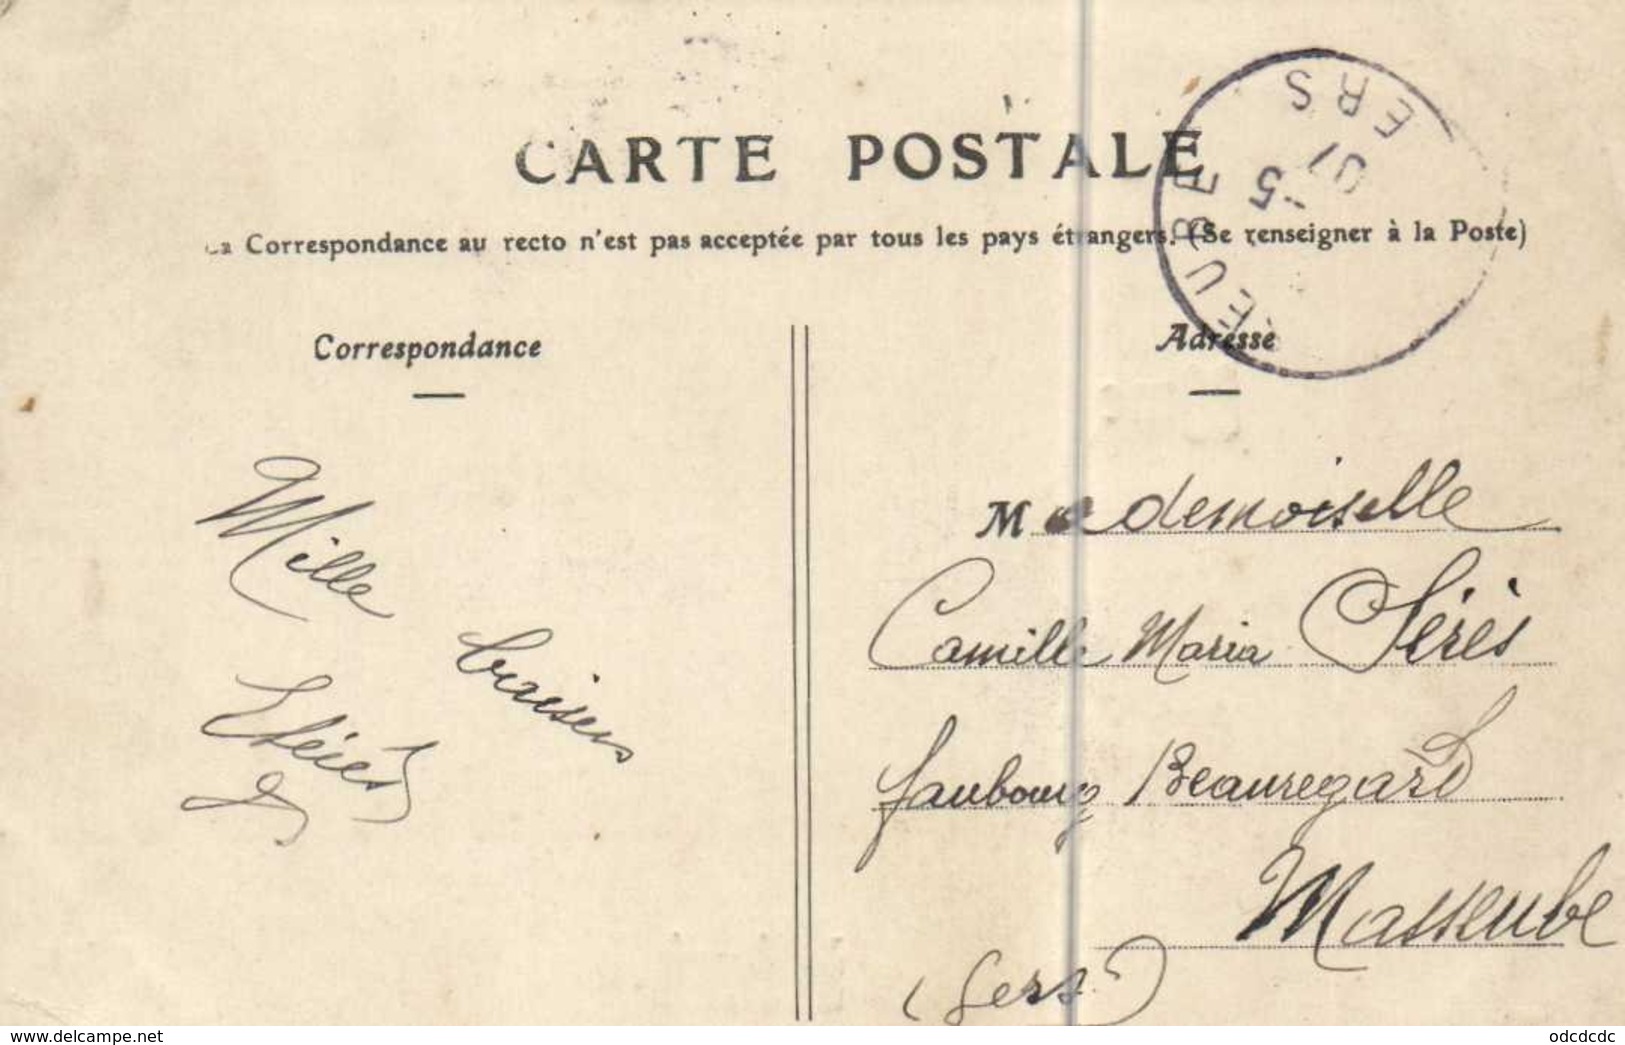 CARTE POSTALE
La Correspondance au recto n'est pas acceptée par tous les pays étrangers. (Se renseigner à la Poste)
EUBE
ERS
5
07
Correspondance
Adresse
Mille
baisers
Mademoiselle
Camille Maria Sérès
faubourg Beauregard
Masseube
(Gers)
www.delcampe.net
odcdcdc